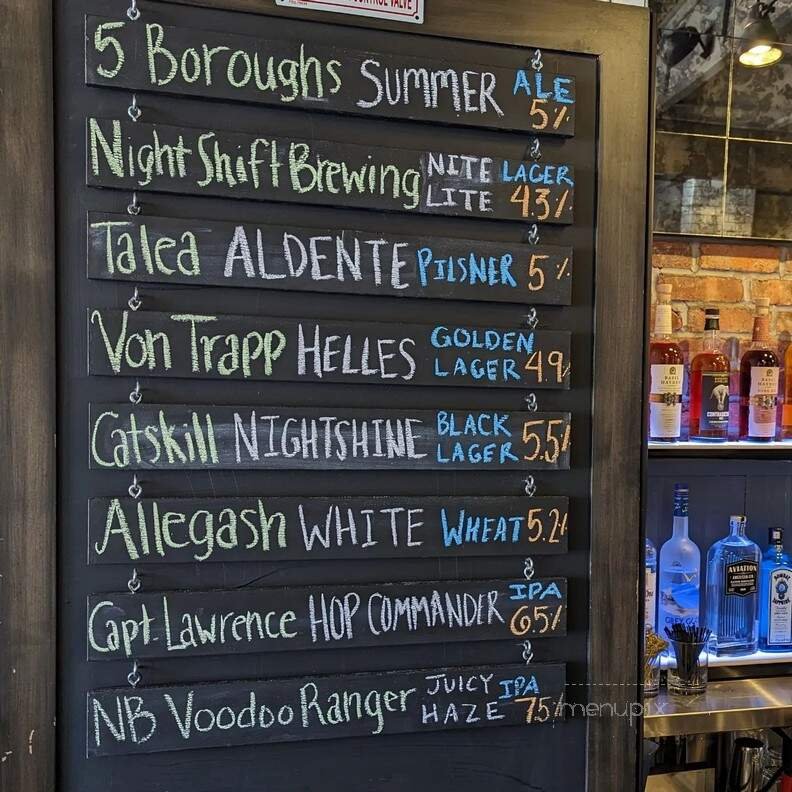 CONTROL VALVE
5 Boroughs SUMMER ALE 5%
Night Shift Brewing NITE LITE LAGER 4.3%
Talea ALDENTE PILSNER 5%
Von Trapp HELLES GOLDEN LAGER 4.9%
Catskill NIGHTSHINE BLACK LAGER 5.5%
Allegash WHITE WHEAT 5.2%
Capt. Lawrence HOP COMMANDER IPA 6.5%
NB Voodoo Ranger JUICY HAZE IPA 7.5%
menupix
BASIL HAYDEN
AVIATION
AMERICAN GIN
GREY GOOSE
BOMBAY